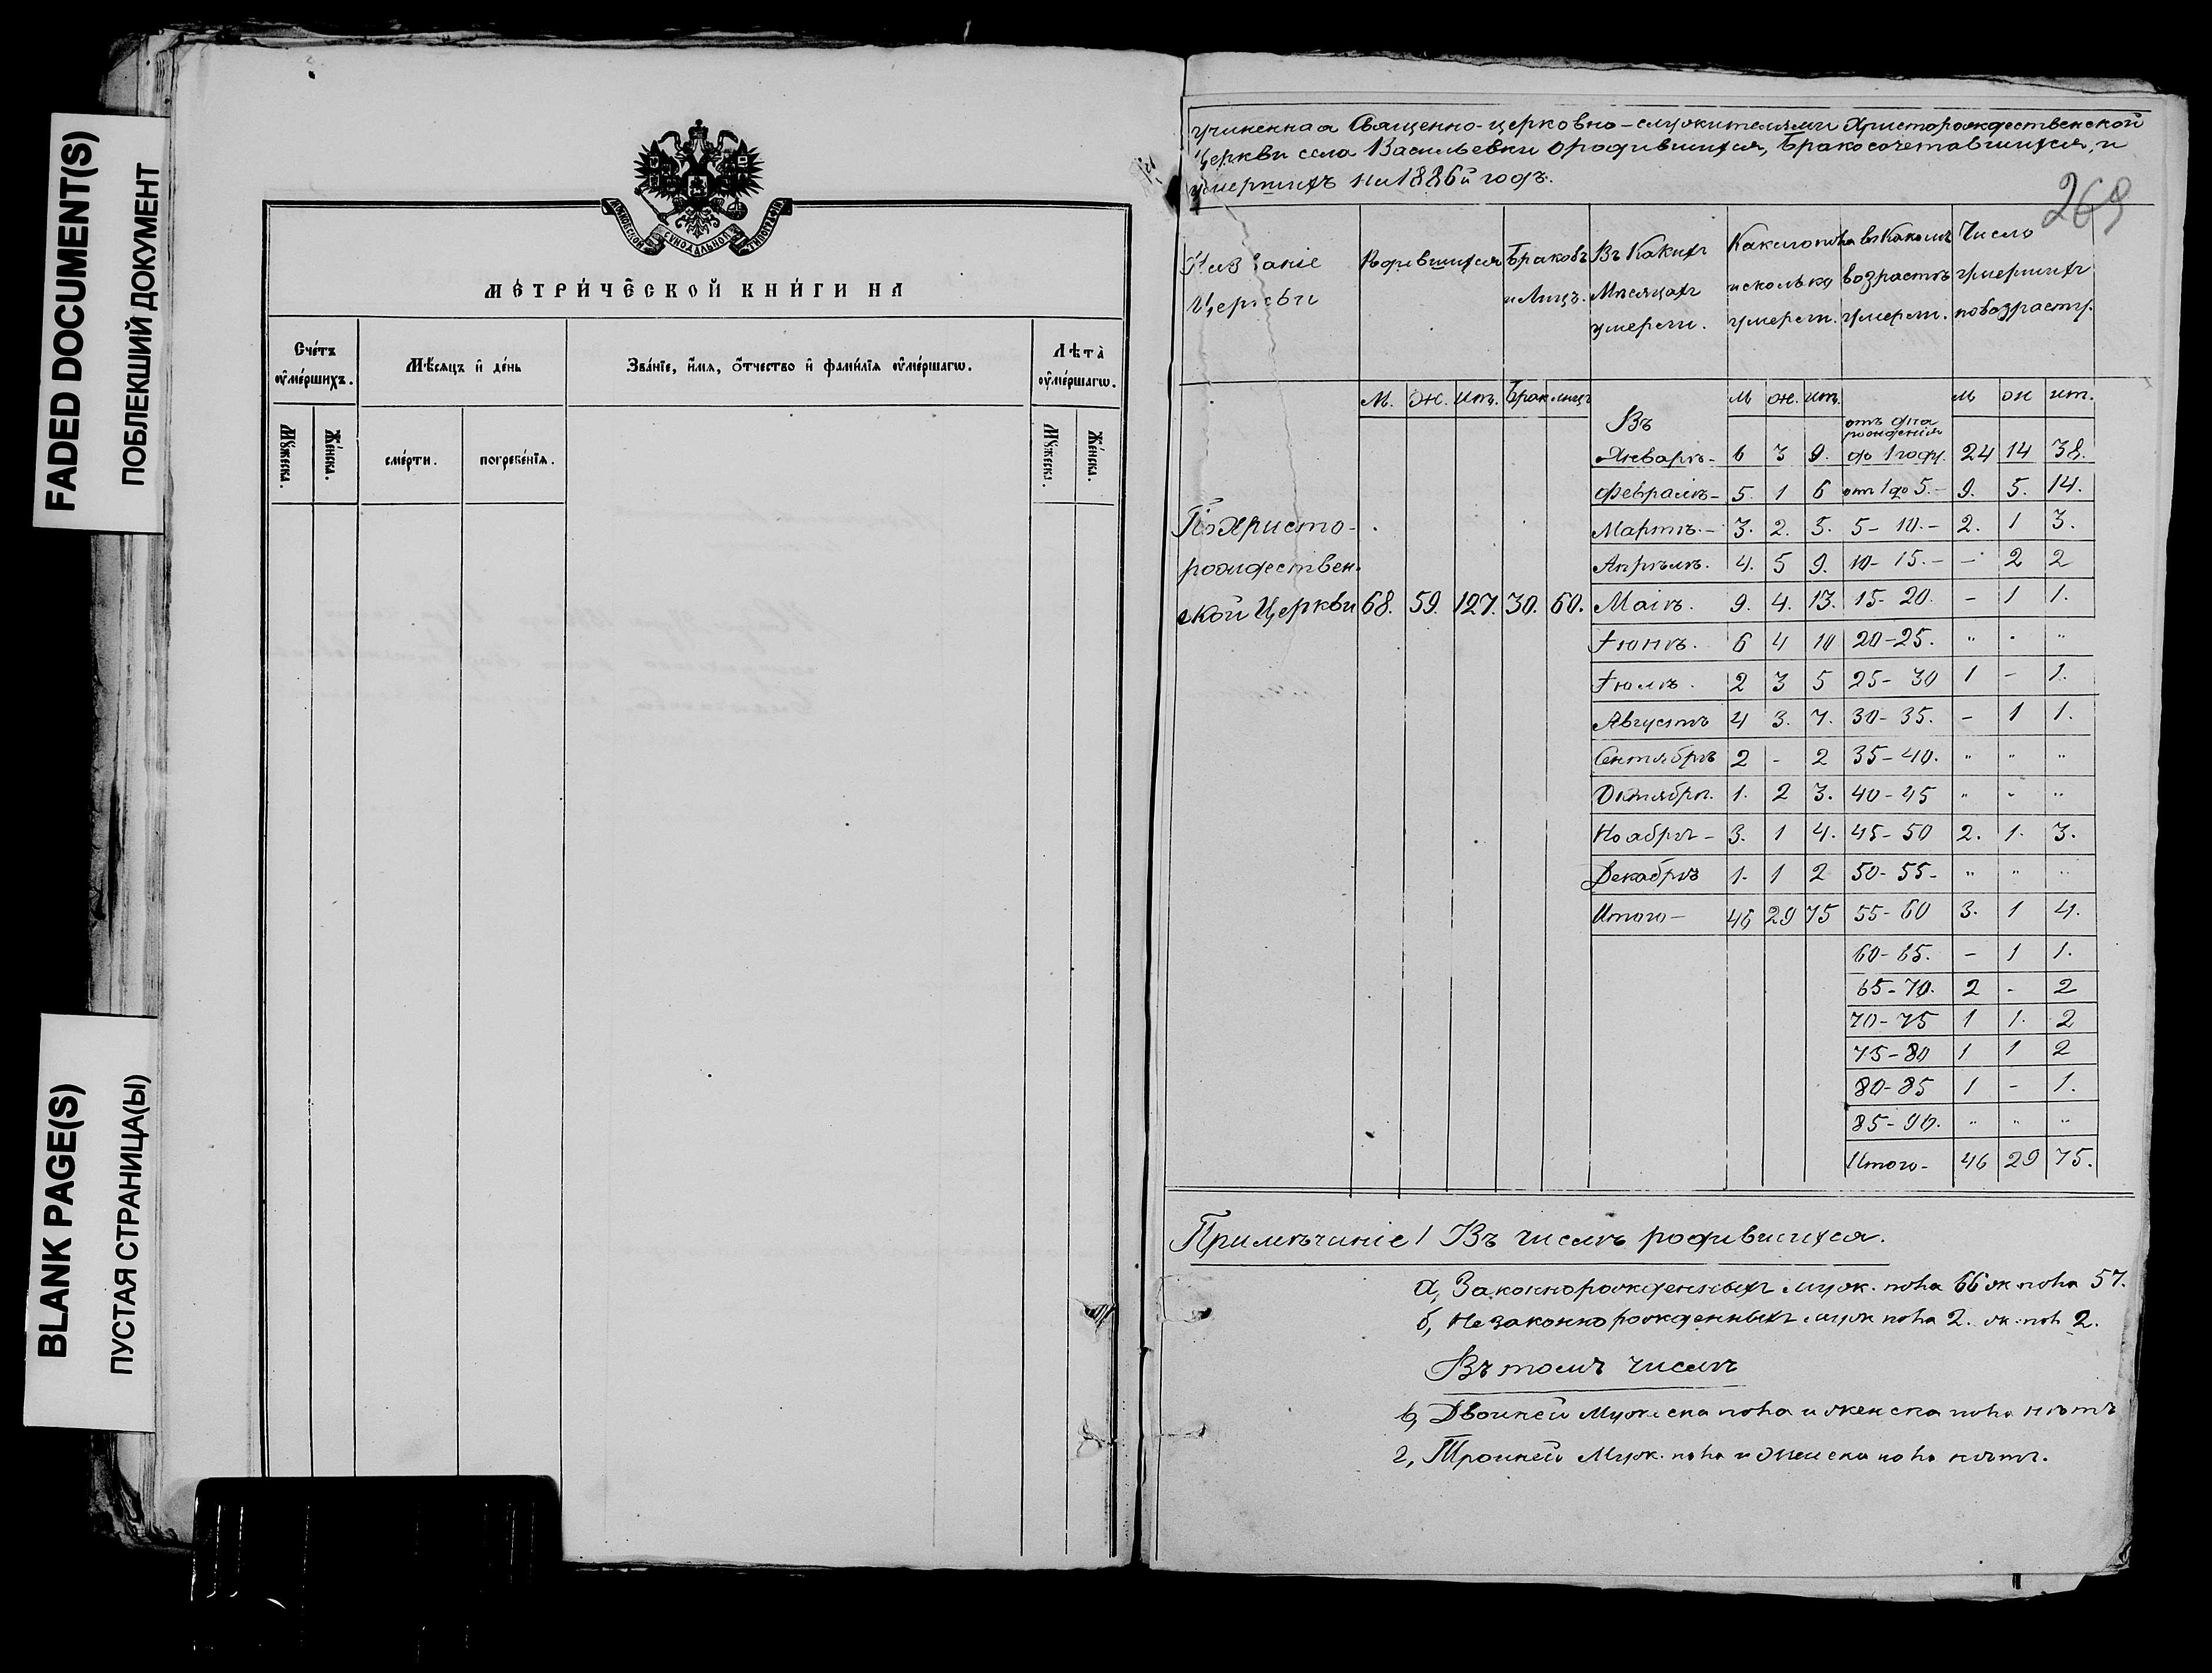 FADED DOCUMENT(S)
ПОБЛЕКШИЙ ДОКУМЕНТ
BLANK PAGE(S)
ПУСТАЯ СТРАНИЦА(Ы)
МОСКОВСКОЙ СѴНОДАЛЬНОЙ ТИПОГРАФІИ
МЕТРИ́ЧЕСКОЙ КНИ́ГИ НА
Сче́тъ ᲂу҆ме́ршихъ.
Мꙋ́жеска.
Же́нска.
Мѣ́сяцъ и҆ де́нь
сме́рти.
погребе́нїѧ.
Зва́нїе, и҆́мѧ, ѻ҆́тчество и҆ фами́лїѧ ᲂу҆ме́ршагѡ.
Лѣта̀ ᲂу҆ме́ршагѡ.
Мꙋ́жеска.
Же́нска.
учиненная Священно-церковно-служителями Христорождественской
Церкви села Васильевки о родившихся, бракосочетавшихся, и
умершихъ на 1886й годъ.
269
Названіе Церкви
Родившихся
Браковъ и Лицъ.
Въ Какихъ Мѣсяцахъ умерли.
Какого пола и сколько умерли.
въ Какомъ возрастѣ умерли.
Число умершихъ по возрасту.
М. Ж. Ит. Брак лицъ
М Ж. Ит.
М Ж ит.
Въ Январѣ- 6 3 9. отъ дня рожденія до 1 году. 24 14 38.
Февралѣ- 5. 1 6 от 1 до 5.- 9. 5. 14.
Мартѣ.- 3. 2. 5. 5- 10.- 2. 1 3.
Апрѣлѣ. 4. 5 9. 10- 15.- - 2 2
По Христо-
рождествен.
ской Церкви 68. 59. 127. 30. 60.
Маѣ. 9. 4. 13. 15- 20. - 1 1.
Іюнѣ. 6 4 10 20-25. " " "
Іюлѣ. 2 3 5 25- 30 1 - 1.
Августѣ 4 3. 7. 30- 35. - 1 1.
Сентябрѣ 2 - 2 35-40. " " "
Октябрѣ. 1. 2 3. 40-45 " " "
Ноябрѣ- 3. 1 4. 45- 50 2. 1. 3.
Декабрѣ 1. 1 2 50- 55- " " "
Итого- 46 29 75 55- 60 3. 1 4.
60- 65. - 1 1.
65-70. 2 - 2
70-75 1 1. 2
75-80 1 1 2
80-85 1 - 1.
85-90. " " "
Итого- 46 29 75.
Примѣчаніе 1 Въ числѣ родившихся.
а, Законнорожденныхъ муж. пола 66 ж пола 57.
б, Незаконнорожденныхъ муж пола 2. ж. пол 2.
Въ томъ числѣ
в, Двойней Мужеска пола и женска пола нѣтъ
г, Тройней Муж. пола и Женска пола нѣтъ.